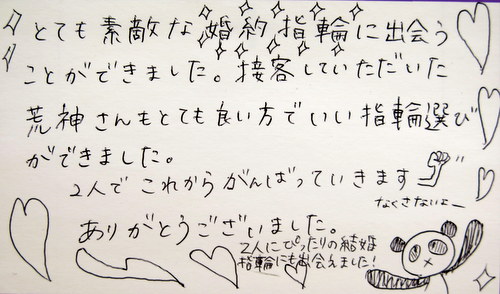 とても素敵な婚約指輪に出会う
ことができました。接客していただいた
荒神さんもとても良い方でいい指輪選び
ができました。
2人で これから がんばっていきます
なくさないよー
ありがとうございました。
2人にぴったりの結婚
指輪にも出会えました!